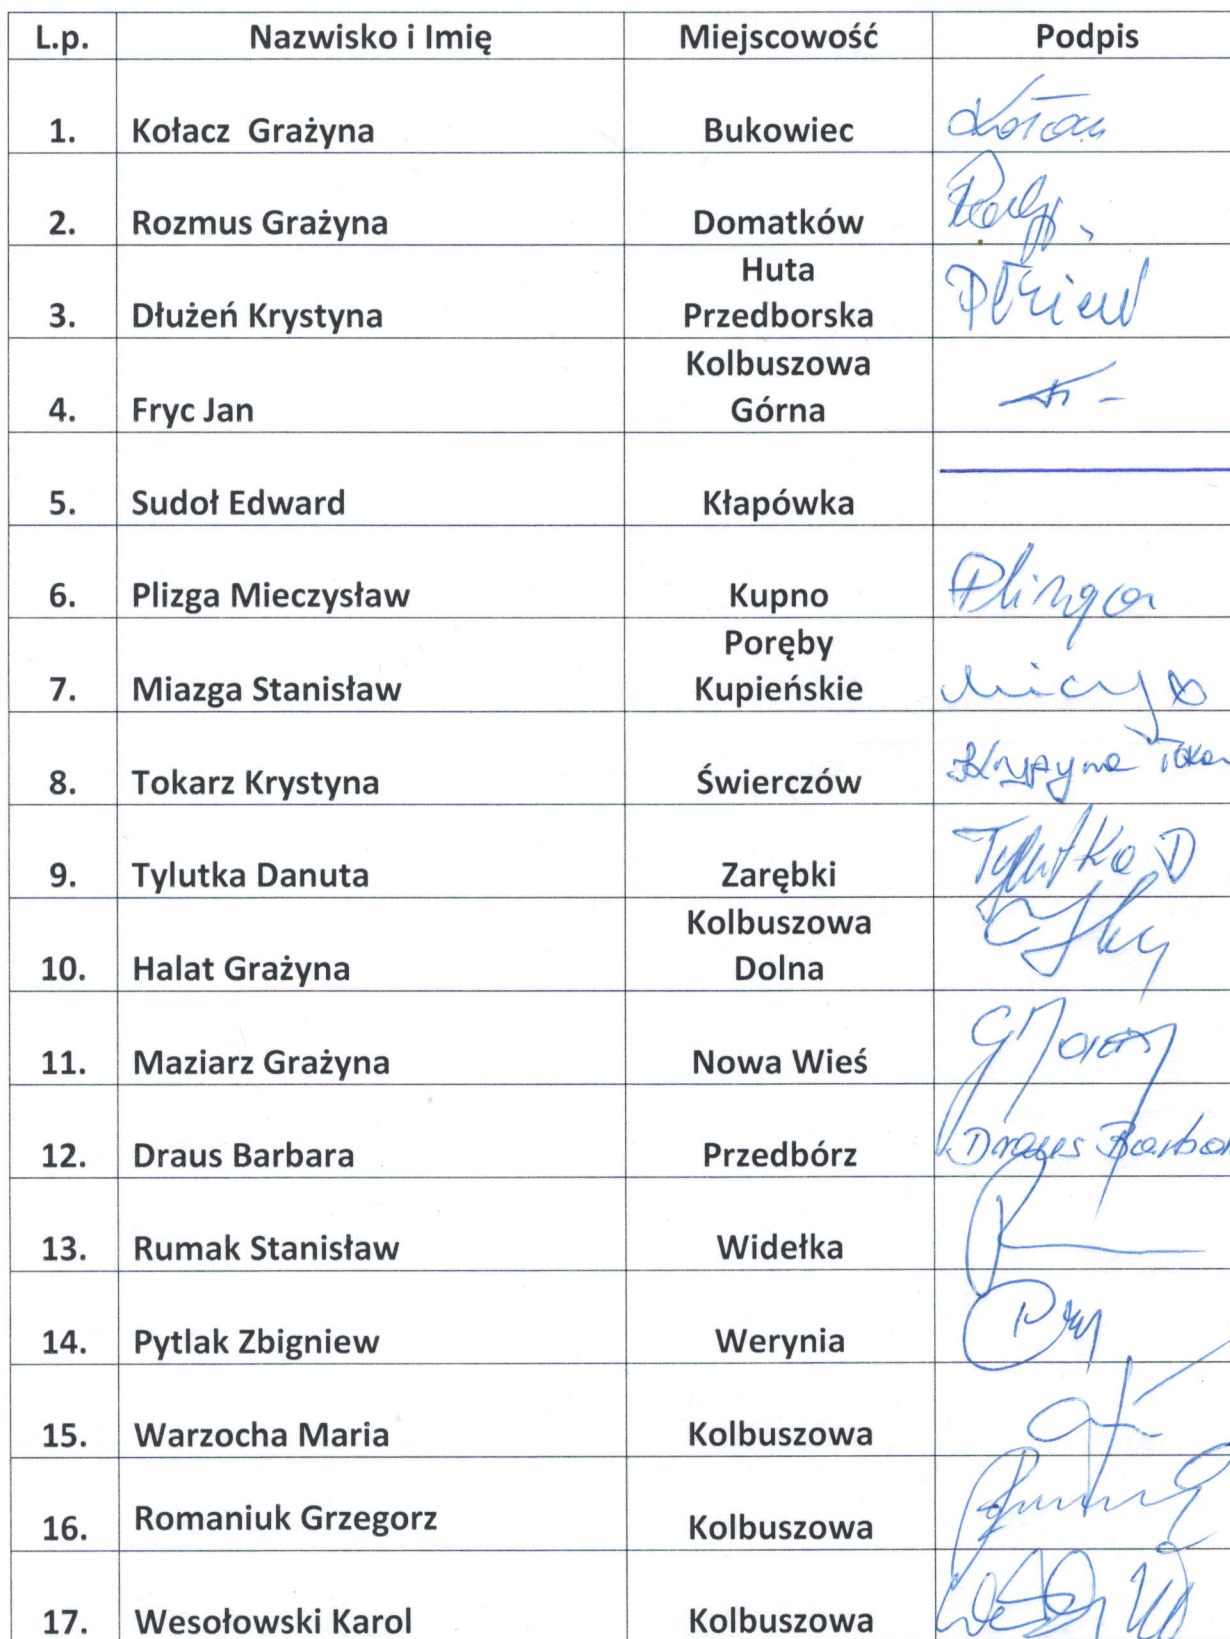 L.p. Nazwisko i Imię Miejscowość Podpis
1. Kołacz Grażyna Bukowiec Kołacz
2. Rozmus Grażyna Domatków
Huta
3. Dłużeń Krystyna Przedborska Dłużeń
Kolbuszowa
4. Fryc Jan Górna
5. Sudoł Edward Kłapówka
6. Plizga Mieczysław Kupno Plizga
Poręby
7. Miazga Stanisław Kupieńskie
8. Tokarz Krystyna Świerczów Krystyna Tokar
9. Tylutka Danuta Zarębki Tylutka D
Kolbuszowa
10. Halat Grażyna Dolna
11. Maziarz Grażyna Nowa Wieś
12. Draus Barbara Przedbórz Draus Barbar
13. Rumak Stanisław Widełka
14. Pytlak Zbigniew Werynia
15. Warzocha Maria Kolbuszowa
16. Romaniuk Grzegorz Kolbuszowa
17. Wesołowski Karol Kolbuszowa